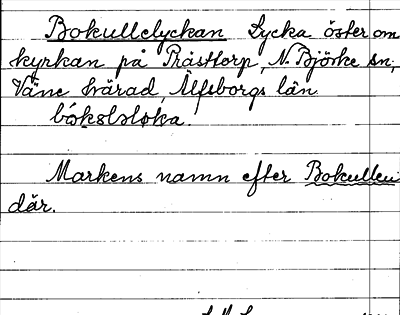 Bokullelyckan Lycka öster om
kyrkan på Prästtorp, N. Björke sn,
Väne härad, Älfsborgs län.
Markens namn efter Bokullen
där.